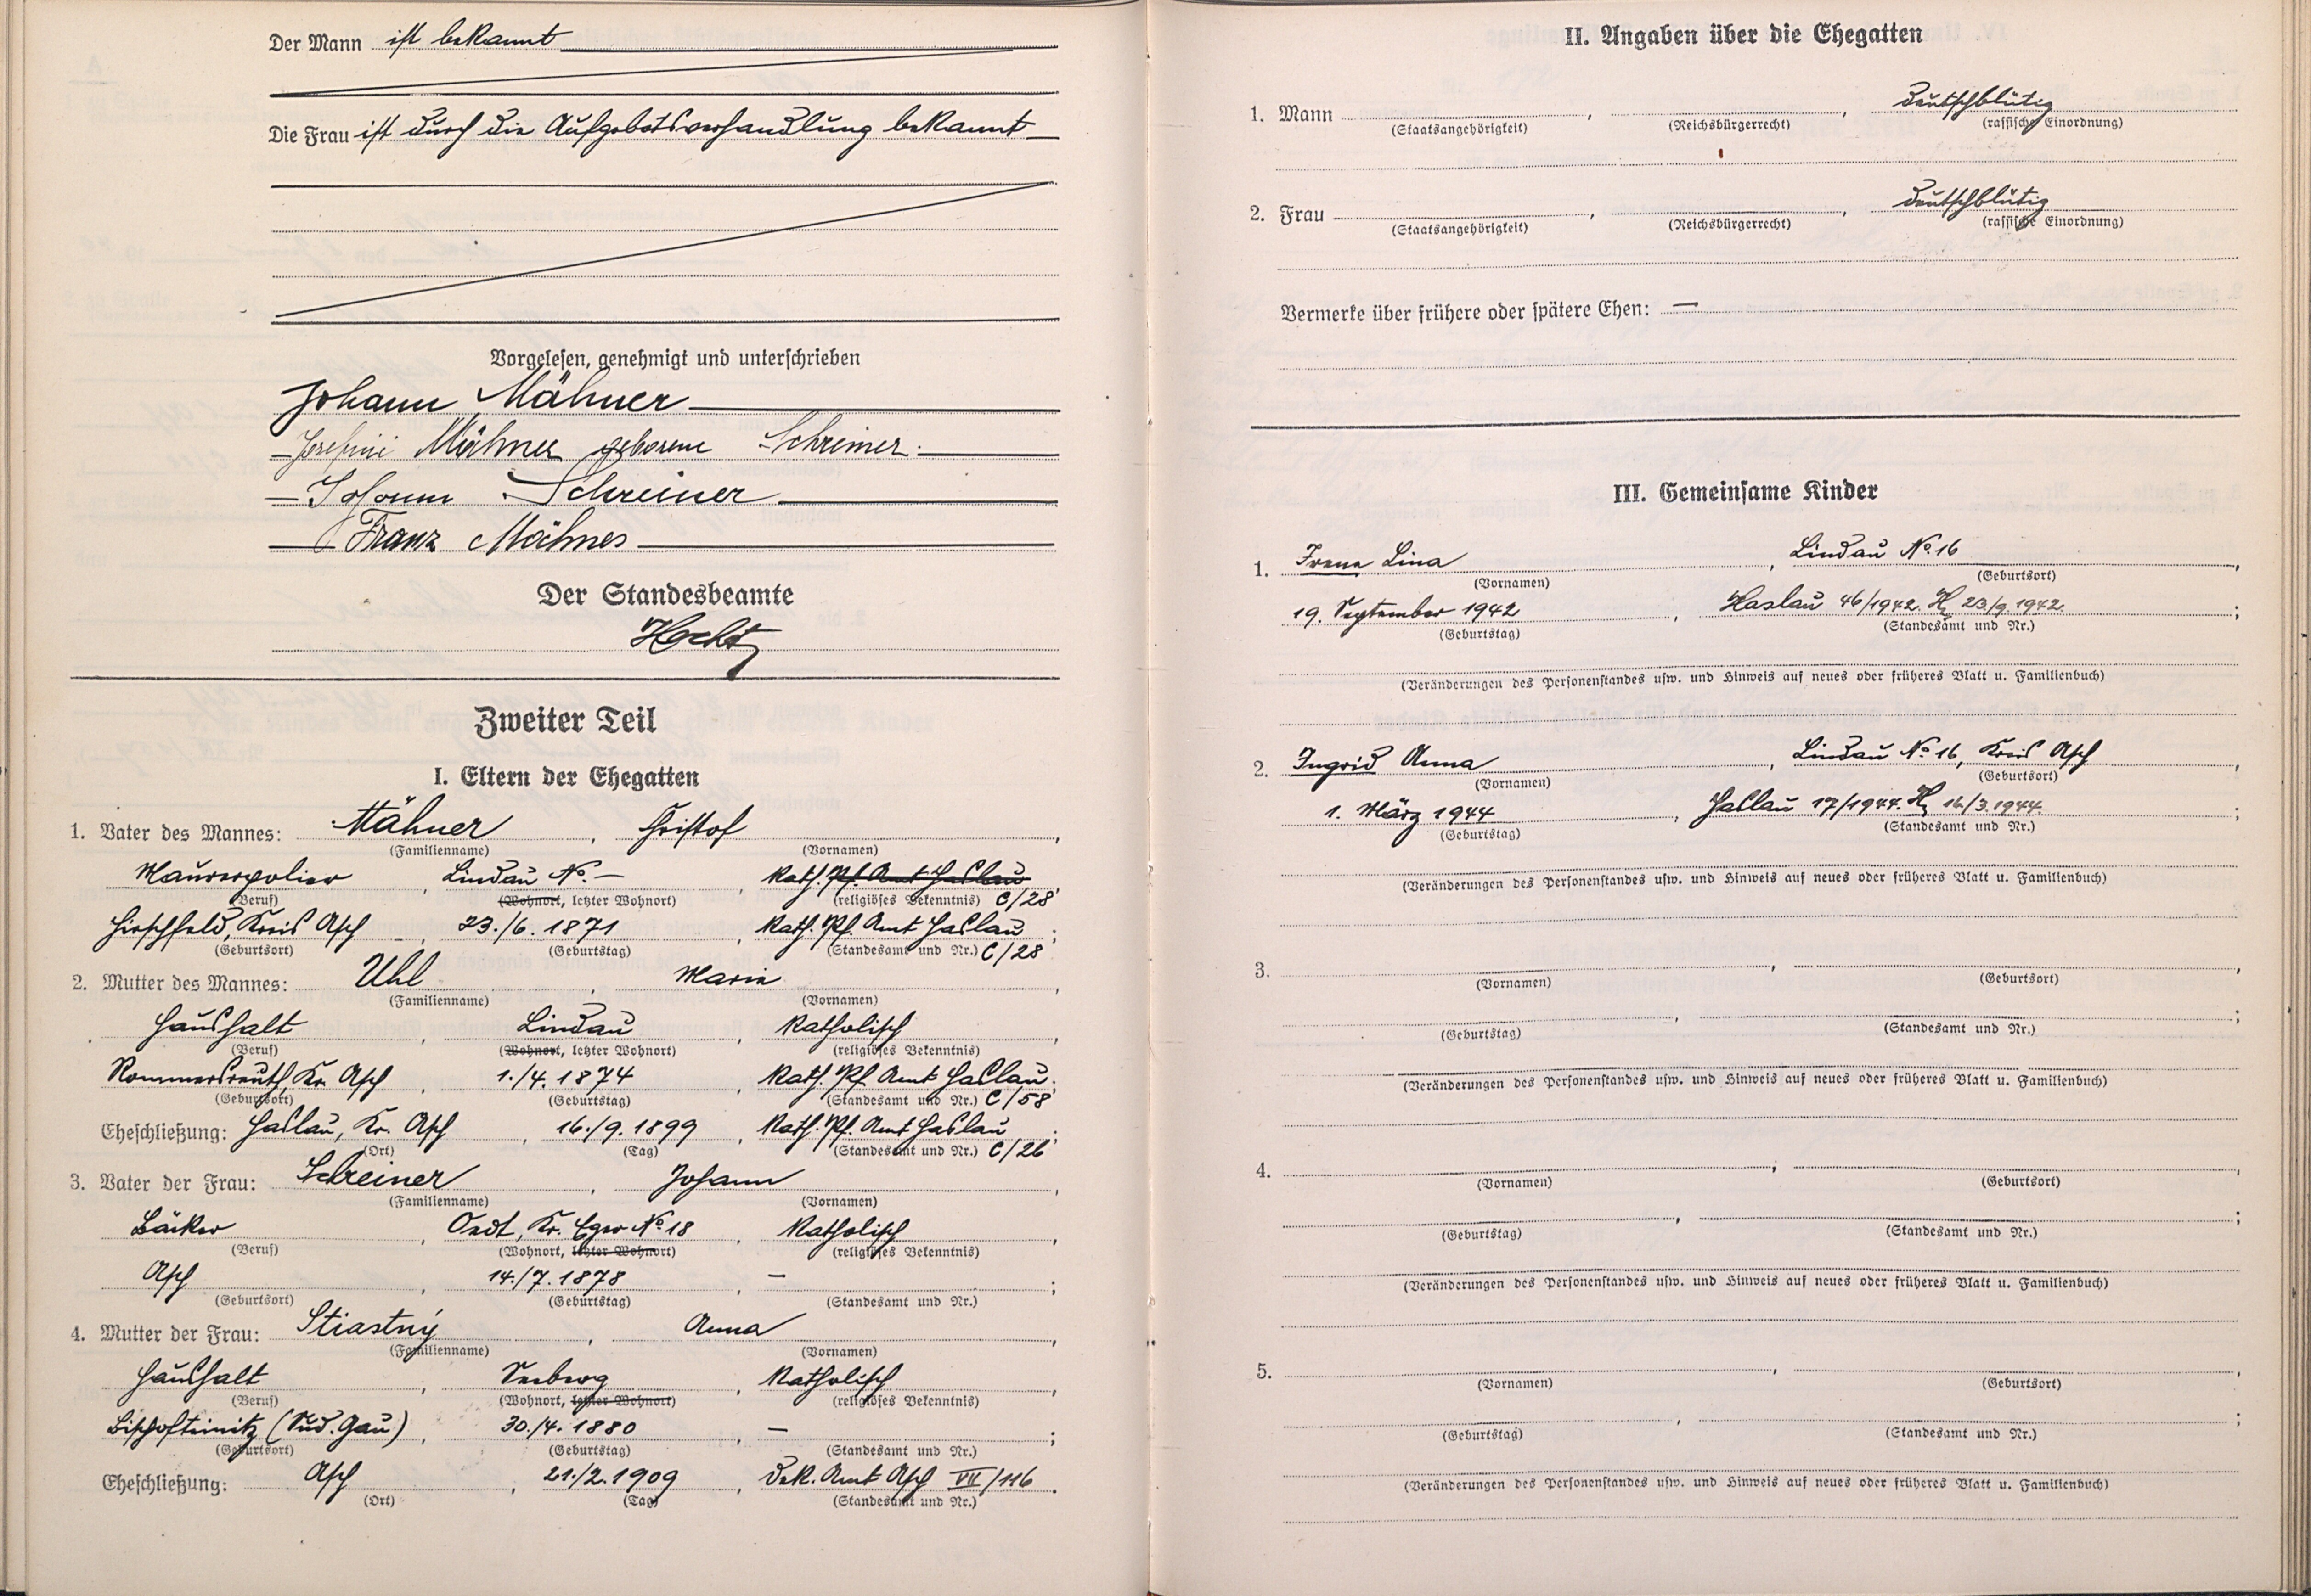 Der Mann ist bekannt
Die Frau ist durch die Aufgebotsverhandlung bekannt
Vorgelesen, genehmigt und unterschrieben
Johann Mähner
Josefine Mähner geborene Schreiner.
Johann Schreiner
Franz Mähner
Der Standesbeamte
Zweiter Teil
I. Eltern der Ehegatten
1. Vater des Mannes: Mähner, Christof,
(Familienname) (Vornamen)
Maurerpolier, Lindau No. –, Kath. Pf. Amt Haslau
(Beruf) (Wohnort, letzter Wohnort) (religiöses Bekenntnis) C/28,
Hirschfeld, Kreis Asch, 23./6. 1871, Kath. Pf. Amt Haslau;
(Geburtsort) (Geburtstag) (Standesamt und Nr.) C/28
2. Mutter des Mannes: Uhl, Marie,
(Familienname) (Vornamen)
Haushalt, Lindau, Katholisch,
(Beruf) (Wohnort, letzter Wohnort) (religiöses Bekenntnis)
Rommersreuth, Kr. Asch, 1./4. 1874, Kath. Pf. Amt Haslau;
(Geburtsort) (Geburtstag) (Standesamt und Nr.) C/58
Eheschließung: Haslau, Kr. Asch, 16./9. 1899, Kath. Pf. Amt Haslau;
(Ort) (Tag) (Standesamt und Nr.) C/26
3. Vater der Frau: Schreiner, Johann,
(Familienname) (Vornamen)
Bäcker, Oedt, Kr. Eger No 18, Katholisch,
(Beruf) (Wohnort, letzter Wohnort) (religiöses Bekenntnis)
Asch, 14./7. 1878, –;
(Geburtsort) (Geburtstag) (Standesamt und Nr.)
4. Mutter der Frau: Stiastný, Anna,
(Familienname) (Vornamen)
Haushalt, Seeberg, Katholisch,
(Beruf) (Wohnort, letzter Wohnort) (religiöses Bekenntnis)
Bischofteinitz (Sud. Gau), 30./4. 1880, –;
(Geburtsort) (Geburtstag) (Standesamt und Nr.)
Eheschließung: Asch, 21./2. 1909, Dek. Amt Asch VII/116.
(Ort) (Tag) (Standesamt und Nr.)
II. Angaben über die Ehegatten
1. Mann , , deutschblütig
(Staatsangehörigkeit) (Reichsbürgerrecht) (rassische Einordnung)
2. Frau , , deutschblütig
(Staatsangehörigkeit) (Reichsbürgerrecht) (rassische Einordnung)
Vermerke über frühere oder spätere Ehen: –
III. Gemeinsame Kinder
1. Irene Lina, Lindau No. 16,
(Vornamen) (Geburtsort)
19. September 1942, Haslau 46/1942. 23./9. 1942.;
(Geburtstag) (Standesamt und Nr.)
(Veränderungen des Personenstandes usw. und Hinweis auf neues oder früheres Blatt u. Familienbuch)
2. Ingrid Anna, Lindau No. 16, Kreis Asch,
(Vornamen) (Geburtsort)
1. März 1944, Haslau 17/1944. 16/3. 1944.;
(Geburtstag) (Standesamt und Nr.)
(Veränderungen des Personenstandes usw. und Hinweis auf neues oder früheres Blatt u. Familienbuch)
3. , ,
(Vornamen) (Geburtsort)
, ;
(Geburtstag) (Standesamt und Nr.)
(Veränderungen des Personenstandes usw. und Hinweis auf neues oder früheres Blatt u. Familienbuch)
4. ; ,
(Vornamen) (Geburtsort)
, ;
(Geburtstag) (Standesamt und Nr.)
(Veränderungen des Personenstandes usw. und Hinweis auf neues oder früheres Blatt u. Familienbuch)
5. , ,
(Vornamen) (Geburtsort)
, ;
(Geburtstag) (Standesamt und Nr.)
(Veränderungen des Personenstandes usw. und Hinweis auf neues oder früheres Blatt u. Familienbuch)